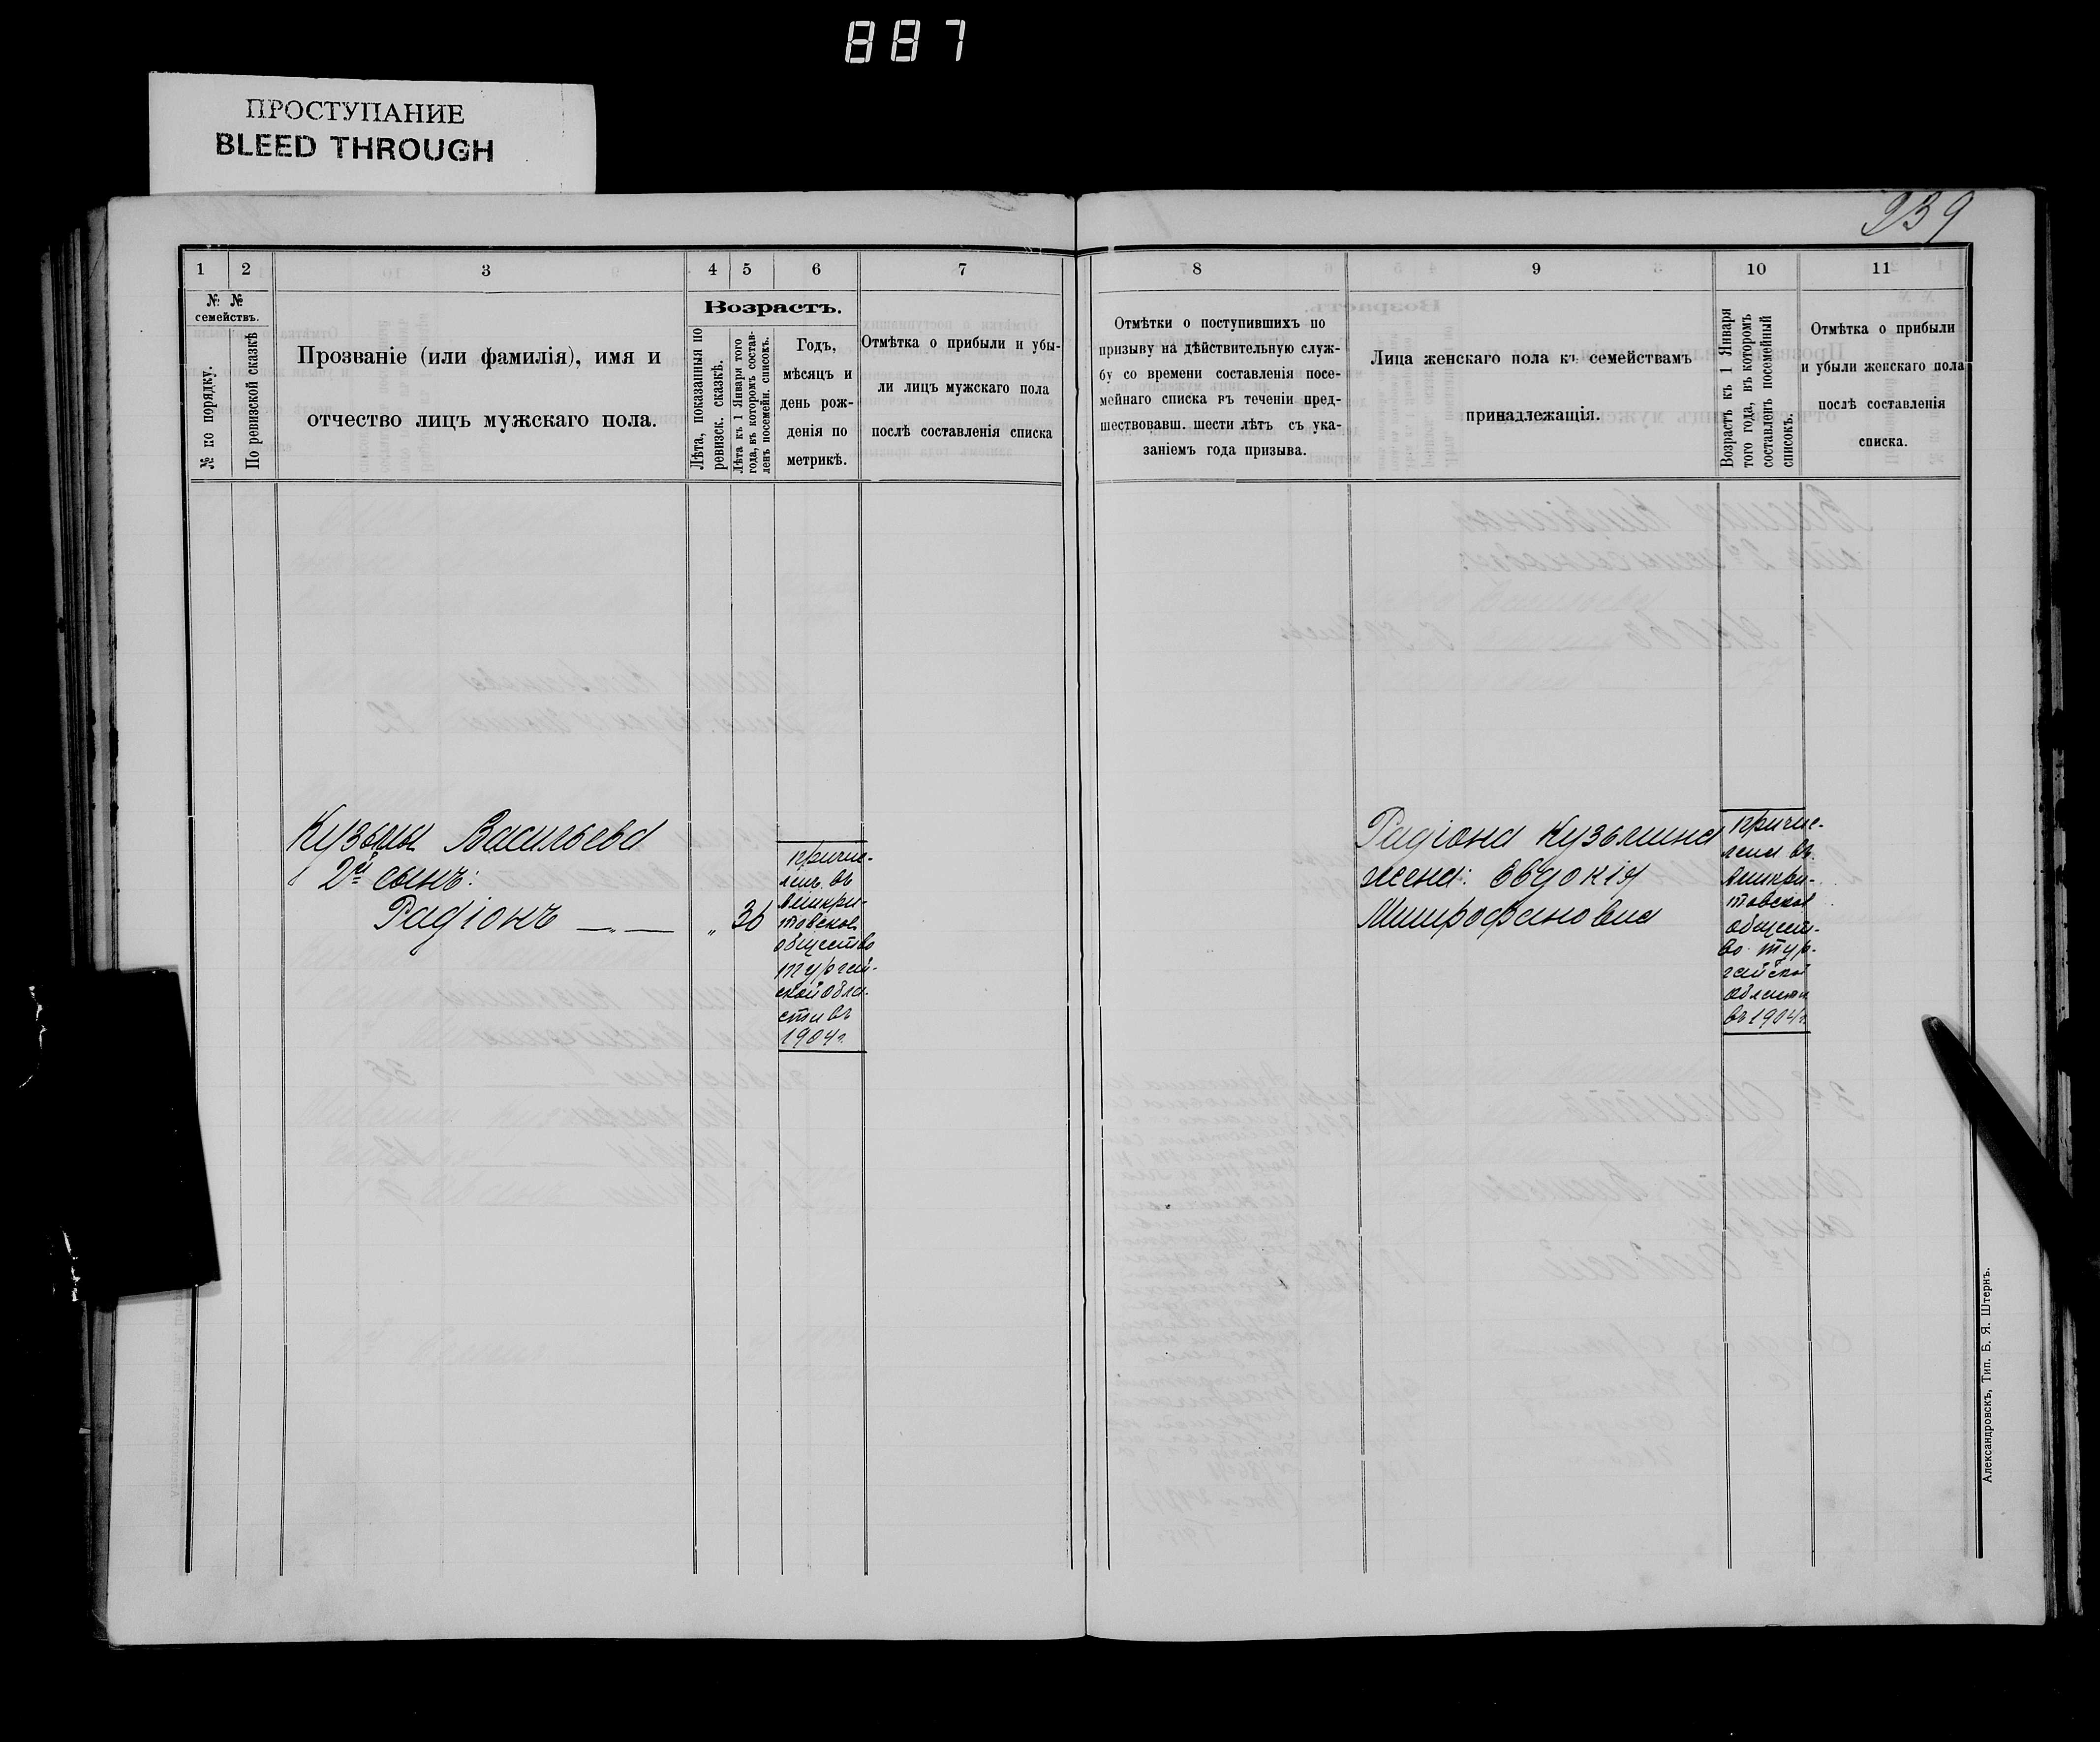 887
ПРОСТУПАНИЕ
BLEED THROUGH
239
1 2 3 4 5 6 7
№ № семействъ.
№ по порядку.
По ревизской сказкѣ
Прозваніе (или фамилія), имя и
отчество лицъ мужскаго пола.
Возрастъ.
Лѣта, показанныя по
ревизск. сказкѣ.
Лѣта къ 1 Января того
года, въ которомъ состав-
ленъ посемейн. списокъ.
Годъ,
мѣсяцъ и
день рож-
денія по
метрикѣ.
Отмѣтка о прибыли и убы-
ли лицъ мужскаго пола
послѣ составленія списка
Кузьмы Васильева
2й сынъ:
Радіонъ — „ — „ 36
причис-
ленъ въ
товское
общество
тургай-
ской обла-
сти въ
1904г.
8 9 10 11
Отмѣтки о поступившихъ по
призыву на дѣйствительную служ-
бу со времени составленія посе-
мейнаго списка въ теченіи пред-
шествовавш. шести лѣтъ съ ука-
заніемъ года призыва.
Лица женскаго пола къ семействамъ
принадлежащія.
Возрастъ къ 1 Января
того года, въ которомъ
составленъ посемейный
списокъ.
Отмѣтка о прибыли
и убыли женскаго пола
послѣ составленія
списка.
Радіона Кузьмина
жена: Евдокія
Митрофановна
причис-
лена въ
товское
общест-
во тур-
гайской
области
въ 1904г.
Александровскъ, Тип. Б. Я. Штернъ.